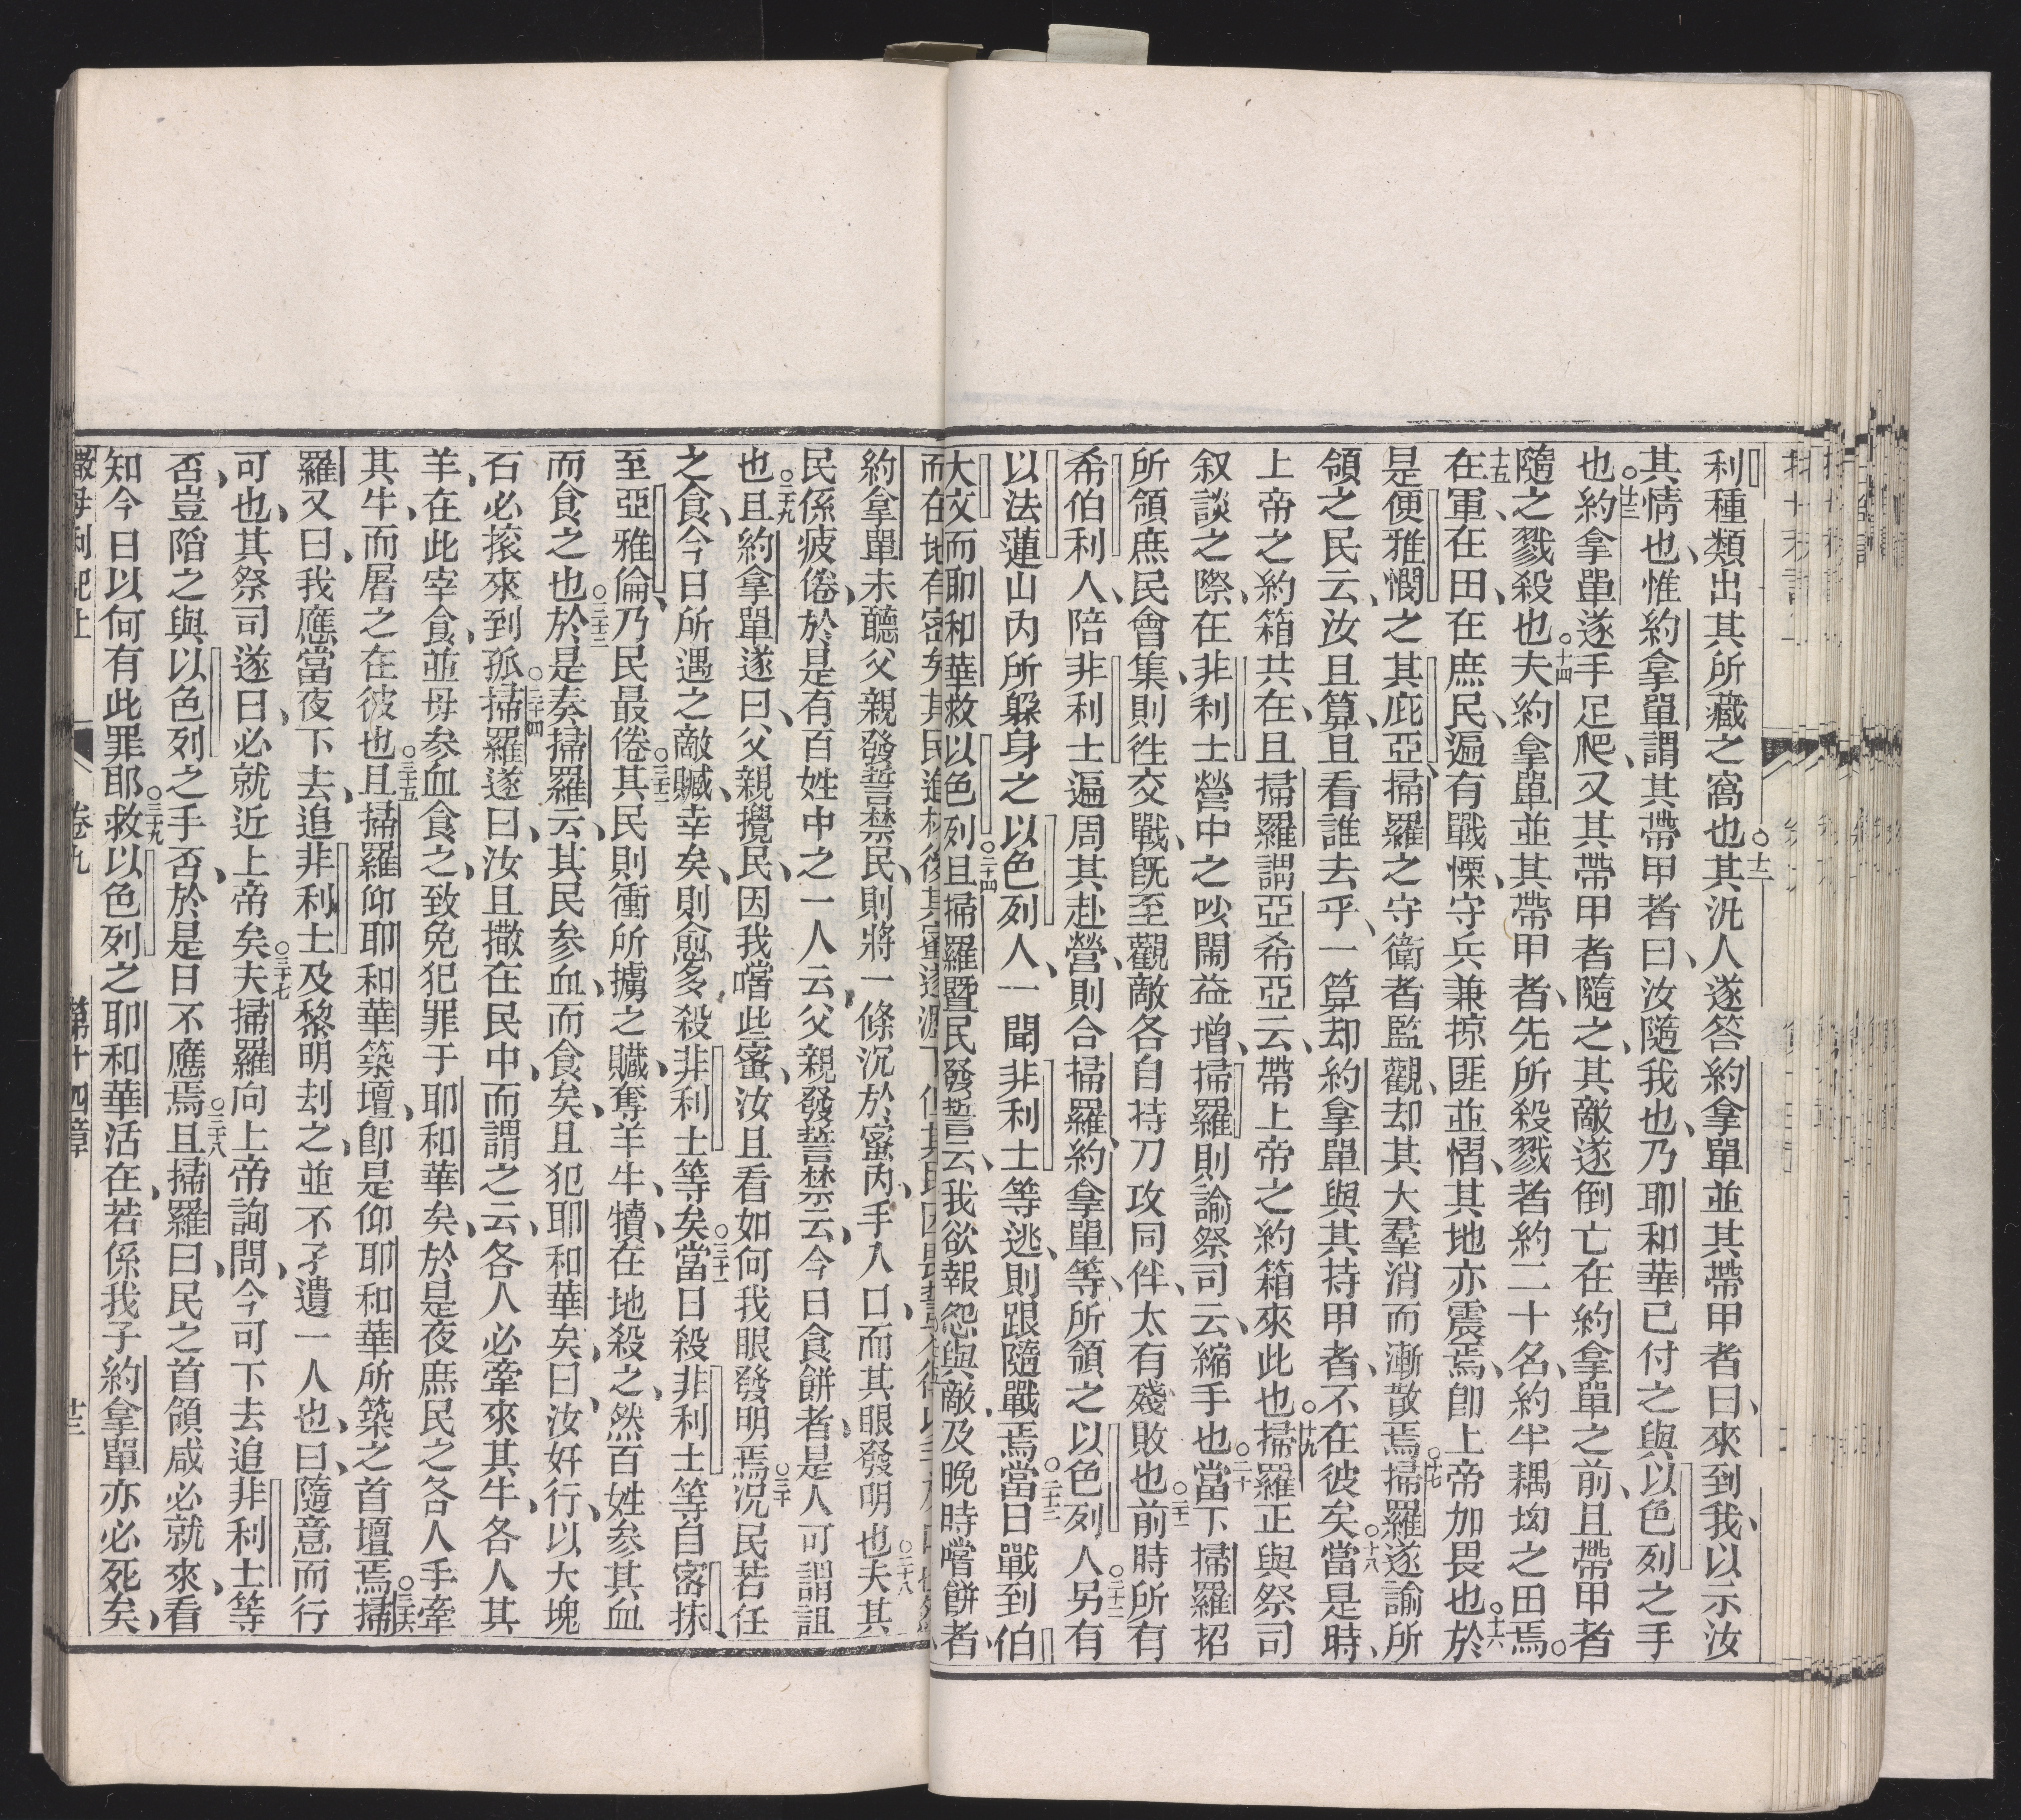 利種類出其所藏之窩也○十二其汛人遂答約拿單並其帶甲者曰來到我以示汝
其情也惟約拿單謂其帶甲者曰汝隨我也乃耶和華已付之與以色列之手
也○十三約拿單遂手足爬又其帶甲者隨之其敵遂倒亡在約拿單之前且帶甲者
隨之戮殺也○十四夫約拿單並其帶甲者先所殺戮者約二十名約半耦坳之田焉○
十五在軍在田在庶民遍有戰慄守兵兼掠匪並慴其地亦震焉卽上帝加畏也○十六於
是便雅憫之其庇亞掃羅之守衛者監觀却其大羣消而漸散焉○十七掃羅遂諭所
領之民云汝且算且看誰去乎一算却約拿單與其持甲者不在彼矣○十八當是時
上帝之約箱共在且掃羅謂亞希亞云帶上帝之約箱來此也○十九掃羅正與祭司
叙談之際在非利士營中之吆鬧益增掃羅則諭祭司云縮手也○二十當下掃羅招
所領庶民會集則徃交戰旣至觀敵各自持刀攻同伴太有殘敗也○二十一前時所有
希伯利人陪非利士遍周其赴營則合掃羅約拿單等所領之以色列人○二十二另有
以法蓮山內所躲身之以色列人一聞非利士等逃則跟隨戰焉○二十三當日戰到伯
大文而耶和華救以色列○二十四且掃羅曁民發誓云我欲報怨與敵及晚時嚐餅者
而在地有密矣其民進林後其蜜遂
約拿單未聽父親發誓禁民則將一條沉於蜜內手入口而其眼發明也○二十八夫其
民係疲倦於是有百姓中之一人云父親發誓禁云今日食餅者是人可謂詛
也○二十九且約拿單遂曰父親攪民因我嚐些蜜汝且看如何我眼發明焉○三十况民若任
之食今日所遇之敵贓幸矣則愈多殺非利士等矣○三十一當日殺非利士等自密抹
至亞雅倫乃民最倦○三十二其民則衝所擄之贓奪羊牛犢在地殺之然百姓參其血
而食之也○三十三於是奏掃羅云其民參血而食矣且犯耶和華矣曰汝奸行以大塊
石必滾來到孤○三十四掃羅遂曰汝且撒在民中而謂之云各人必牽來其牛各人其
羊在此宰食並毋參血食之致免犯罪于耶和華矣於是夜庶民之各人手牽
其牛而屠之在彼也○三十五且掃羅仰耶和華築壇卽是仰耶和華所築之首壇焉○三十六掃
羅又曰我應當夜下去追非利士及黎明刦之並不孑遺一人也曰隨意而行
可也其祭司遂曰必就近上帝矣○三十七夫掃羅向上帝詢問今可下去追非利士等
否豈陷之與以色列之手否於是日不應焉○三十八且掃羅曰民之首領咸必就來看
知今日以何有此罪耶○三十九救以色列之耶和華活在若係我子約拿單亦必死矣
撒母利記上 卷九 第十四章 廿三